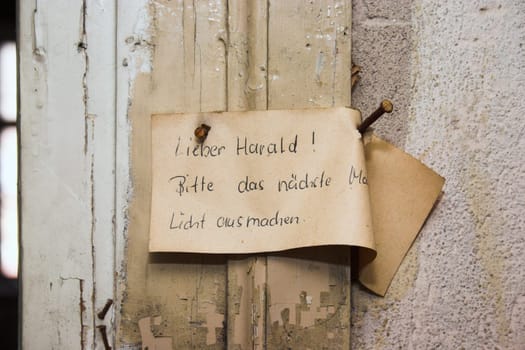 Lieber Harald !
Bitte das nächste
Licht ausmachen.